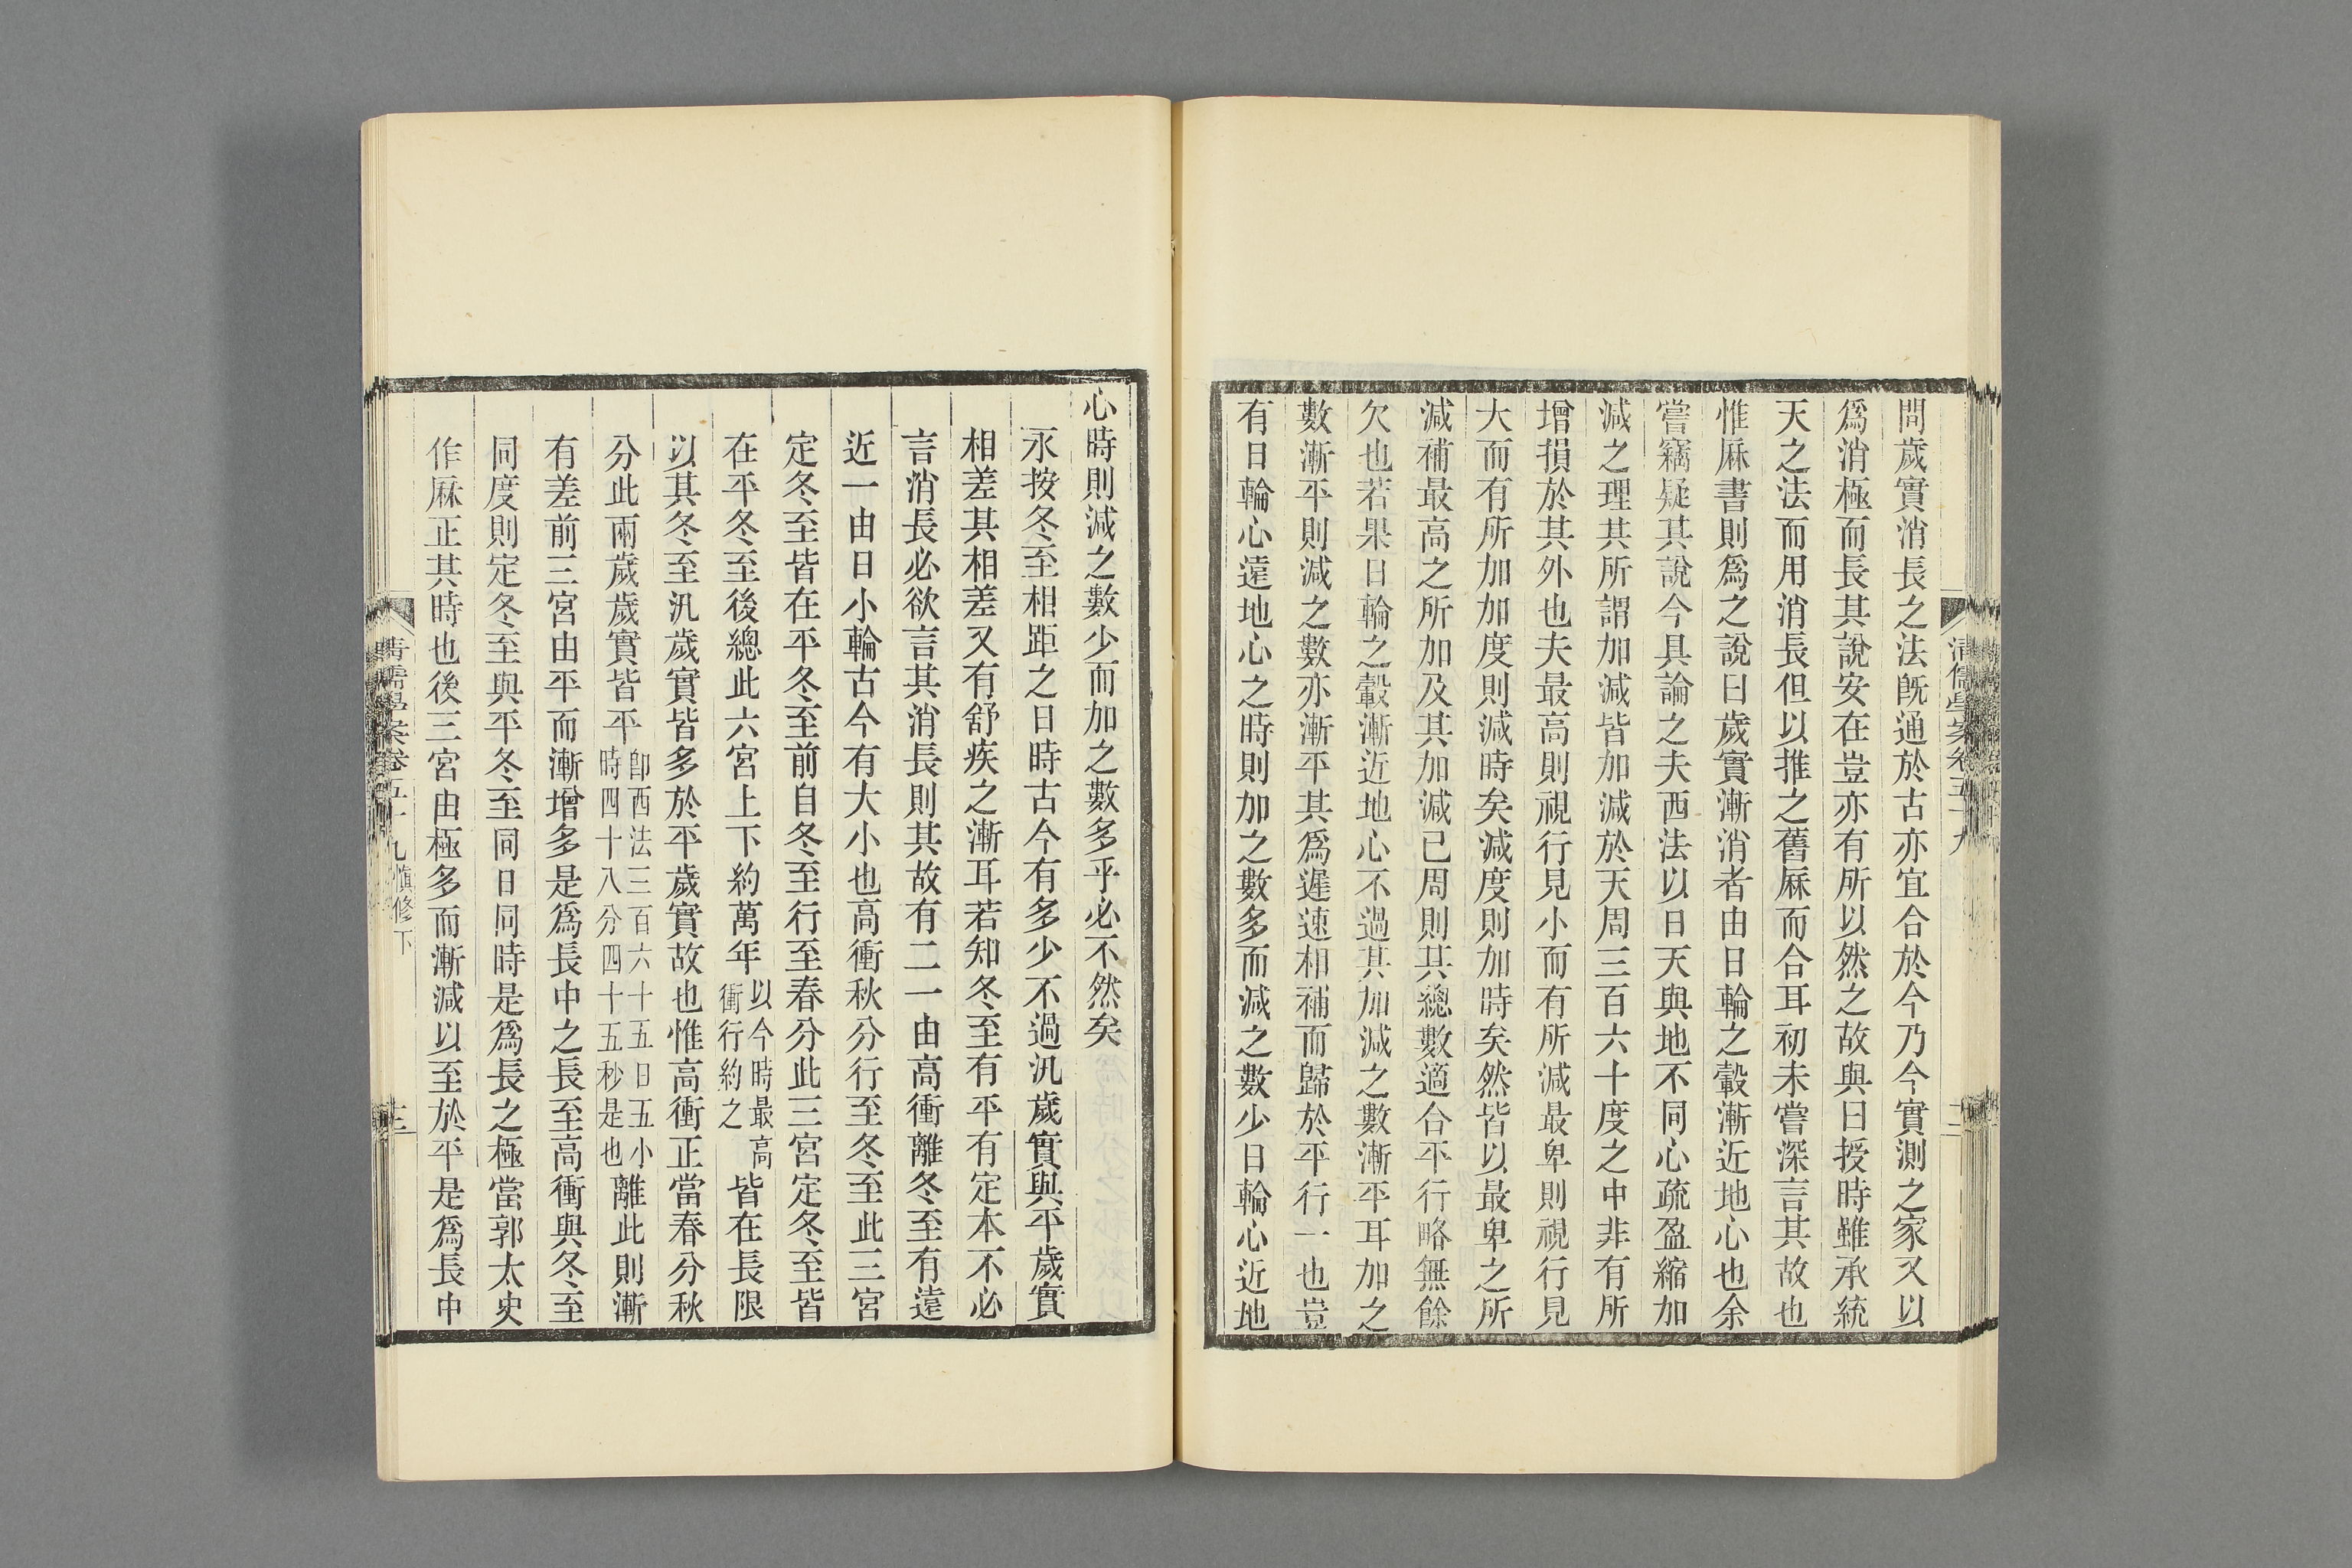 問歲實消長之法旣通於古亦宜合於今乃今實測之家又以
爲消極而長其說安在豈亦有所以然之故與曰授時雖承統
天之法而用消長但以推之舊厤而合耳初未嘗深言其故也
惟厤書則爲之說曰歲實漸消者由日輪之轂漸近地心也余
嘗竊疑其說今具論之夫西法以日天與地不同心疏盈縮加
減之理其所謂加減皆加減於天周三百六十度之中非有所
增損於其外也夫最高則視行見小而有所減最卑則視行見
大而有所加加度則減時矣減度則加時矣然皆以最卑之所
減補最高之所加及其加減已周則其總數適合平行略無餘
欠也若果日輪之轂漸近地心不過其加減之數漸平耳加之
數漸平則減之數亦漸平其爲遲速相補而歸於平行一也豈
有日輪心遠地心之時則加之數多而減之數少日輪心近地
心時則減之數少而加之數多乎必不然矣
永按冬至相距之日時古今有多少不過汎歲實與平歲實
相差其相差又有舒疾之漸耳若知冬至有平有定本不必
言消長必欲言其消長則其故有二一由高衝離冬至有遠
近一由日小輪古今有大小也高衝秋分行至冬至此三宮
定冬至皆在平冬至前自冬至行至春分此三宮定冬至皆
在平冬至後總此六宮上下約萬年以今時最高衝行約之皆在長限
以其冬至汎歲實皆多於平歲實故也惟高衝正當春分秋
分此兩歲歲實皆平卽西法三百六十五日五小時四十八分四十五秒是也離此則漸
有差前三宮由平而漸增多是爲長中之長至高衝與冬至
同度則定冬至與平冬至同日同時是爲長之極當郭太史
作厤正其時也後三宮由極多而漸減以至於平是爲長中
清儒學案卷五十九
清儒學案卷五十九 慎修下